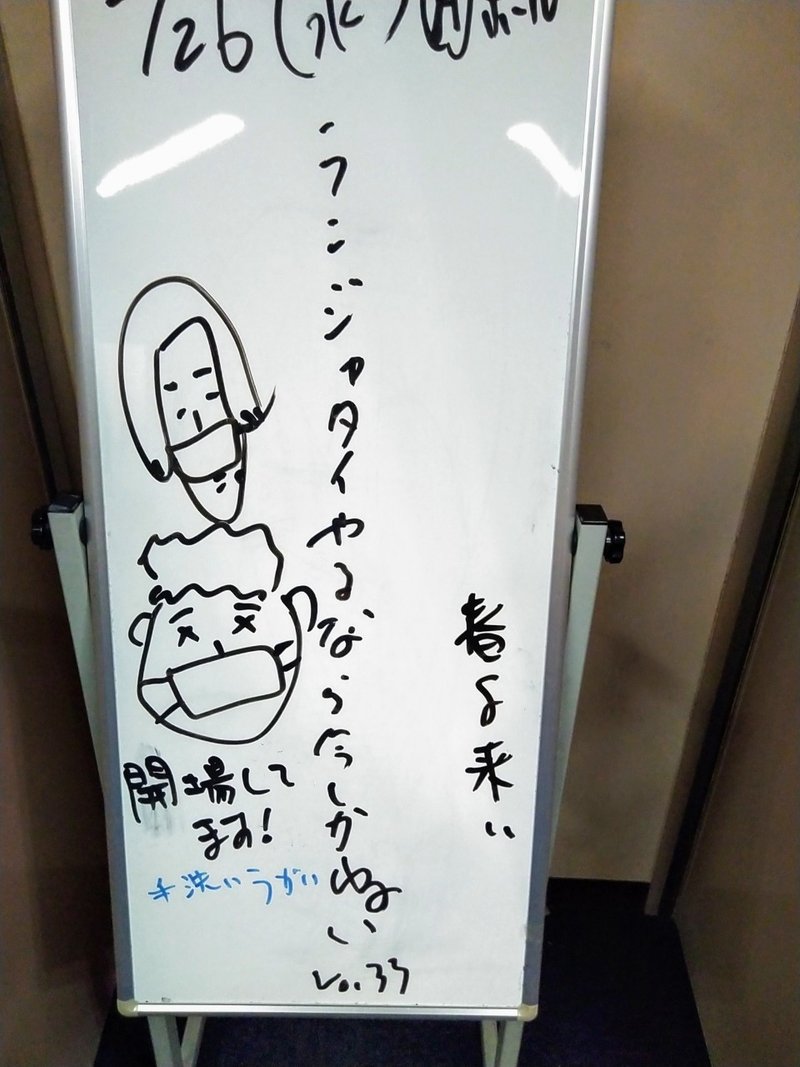 /26(水) ホール
春よ来い
ランジャタイやるなら今しかねい
Vol.33
開場して
ます!
手洗いうがい